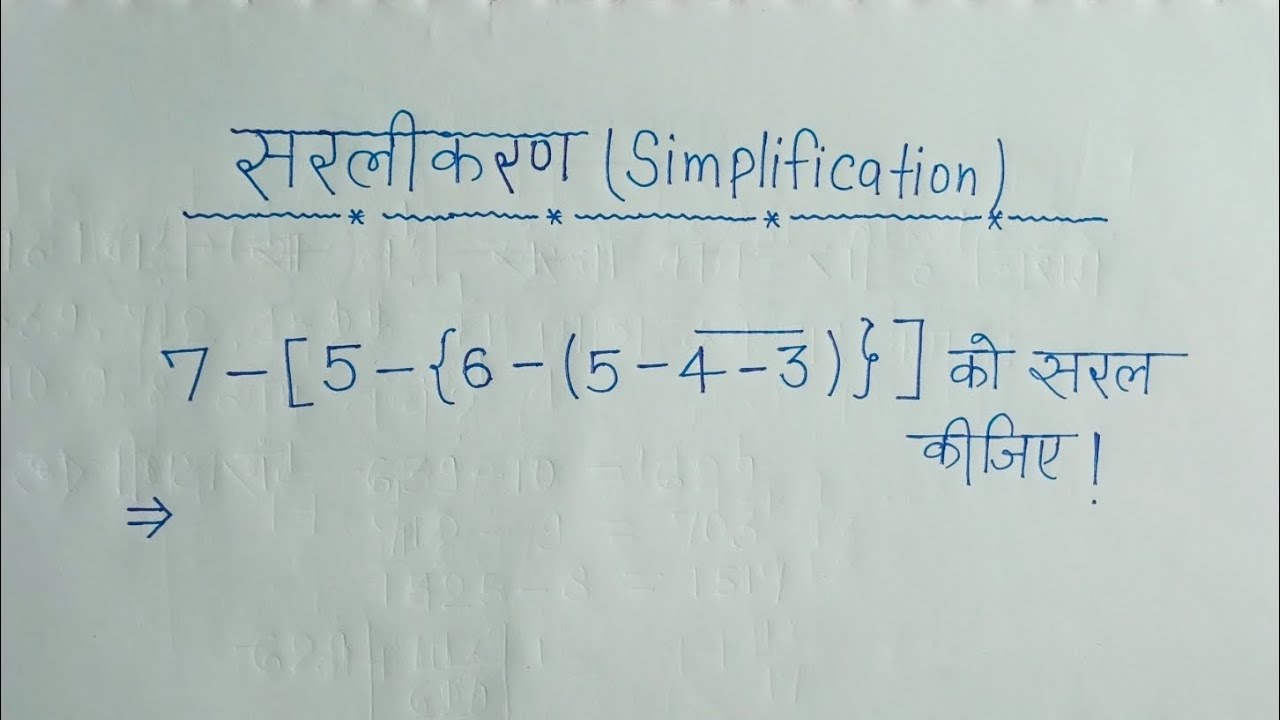 सरलीकरण (Simplification)
7-[5-{6-(5-4̅-̅3̅)}] को सरल
कीजिए!
⇒